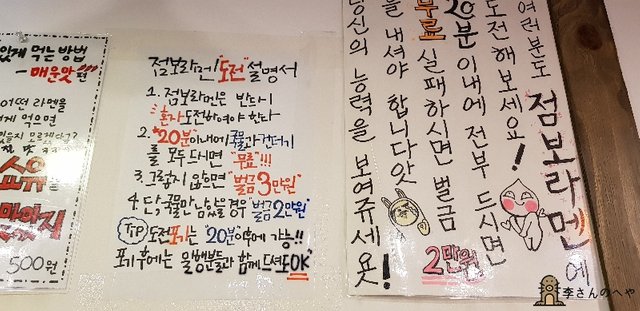 있게 먹는 방법
- 매운맛 편
어떤 라멘을
게 먹으면
500원
점보라멘! "도전" 설명서
1. 점보라멘은 반드시
혼자 도전하여야 한다
2. "20분" 이내에 국물과 건더기
를 모두 드시면 "무료"!!!
3. 그렇지 않으면 "벌금 3만원"
4. 단, 국물만 남았을 경우 "벌금 2만원"
TiP 도전 포기는 "20분 이후에 가능!!
포기 후에는 일행분들과 함께 드셔도 OK"
여러분도 점보라멘에
도전해 보세요!
20분 이내에 전부 드시면
무료 실패하시면 벌금 2만원
을 내셔야 합니다앗
당신의 능력을 보여쥬세욧!
李さんのへや